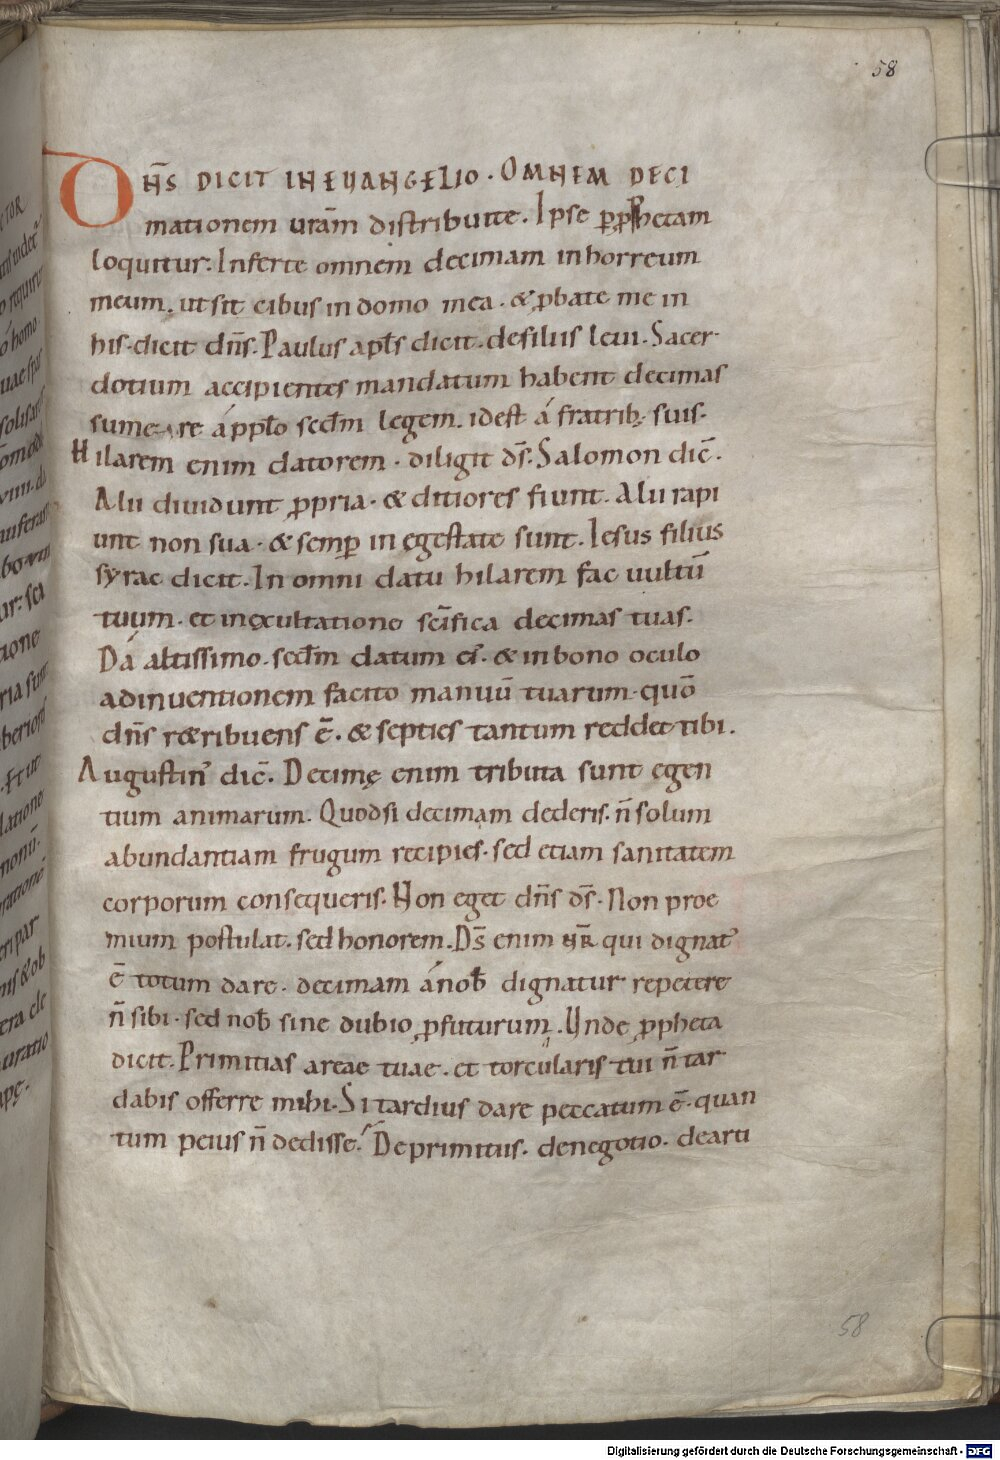 58
DN̄S DICIT IN EUANGELIO · OMNEM DECI
mationem ur̄am distribuite. Ipse ꝑ ꝓphetam
loquitur. Inferte omnem decimam in horreum
meum. ut sit cibus in domo mea · & ꝓbate me in
his · dicit dn̄s. Paulus apł̄s dicit · de filiis leui. Sacer-
dotium accipientes mandatum habent decimas
sumere á ppło scd̄m legem. id est á fratribꝫ suis.
Hilarem enim datorem · diligit d̄s. Salomon dic̄.
Alii diuidunt ꝓpria · & ditiores fiunt. Alii rapi
unt non sua · & semꝑ in egestate sunt. Iesus filius
syrac dicit. In omni datu hilarem fac uultū
tuum. et in exultatione sc̄ifica decimas tuas.
Dá altissimo. scd̄m datum ei'. & in bono oculo
adinuentionem facito manuū tuarum. quō
dn̄s r&ribuens ē. & septies tantum reddet tibi.
Augustin' dic̄. Decimę enim tributa sunt egen
tium animarum. Quodsi decimam dederis. n̄ solum
abundantiam frugum recipies. sed etiam sanitatem
corporum consequeris. Non eget dn̄s d̄s. Non proe
mium postulat. sed honorem. D̄s enim nr̄ qui dignat'
ē totum dare. decimam á nob̄ dignatur repetere
n̄ sibi. sed nob̄ sine dubio ꝓfuturum. Unde ꝓpheta
dicit. Primitias areae tuae. et torcularis tui n̄ tar
dabis offerre mihi. Si tardius dare peccatum ē. quan
tum peius n̄ dedisse. De primitiis. de negotio. de arti
58
Digitalisierung gefördert durch die Deutsche Forschungsgemeinschaft - DFG